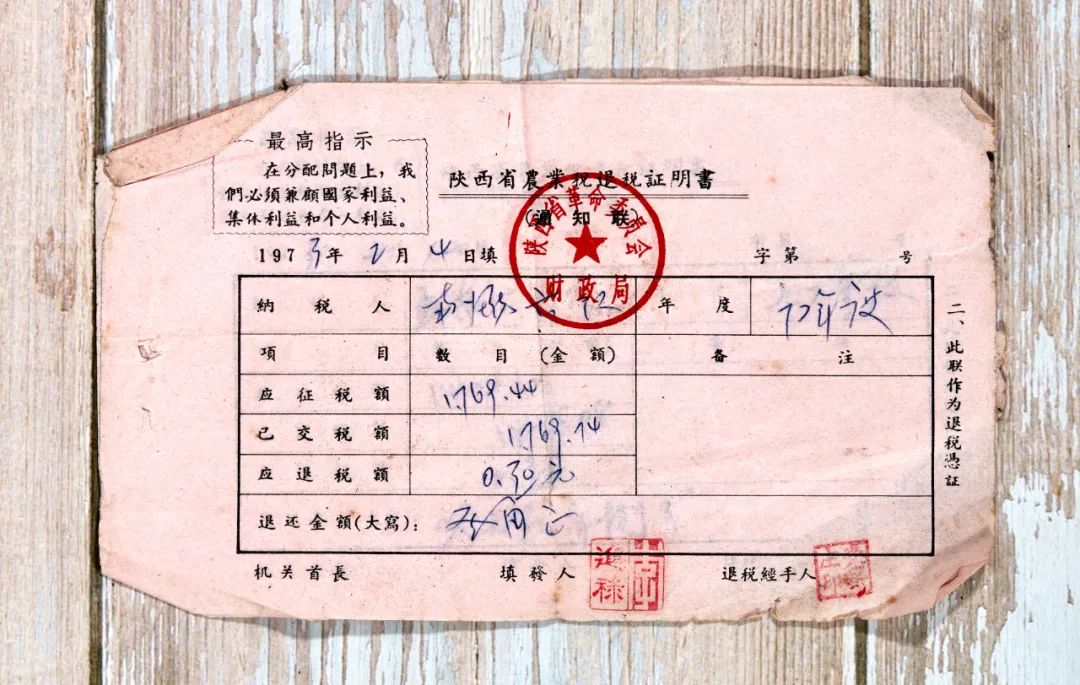 最高指示
在分配问题上，我
們必须兼顾國家利益、
集体利益和个人利益。
陕西省農業税退税証明書
(通知联)
陕西省革命委员会
财政局
1973年2月4日填
字第 号
納税人
年度 72年度
項目 数目(金額) 备注
应征税額 1769.44
已交税額 1769.74
应退税額 0.30元
退还金額(大寫)： 叁角正
机关首長 填發人 退税經手人
二、此联作为退税憑証